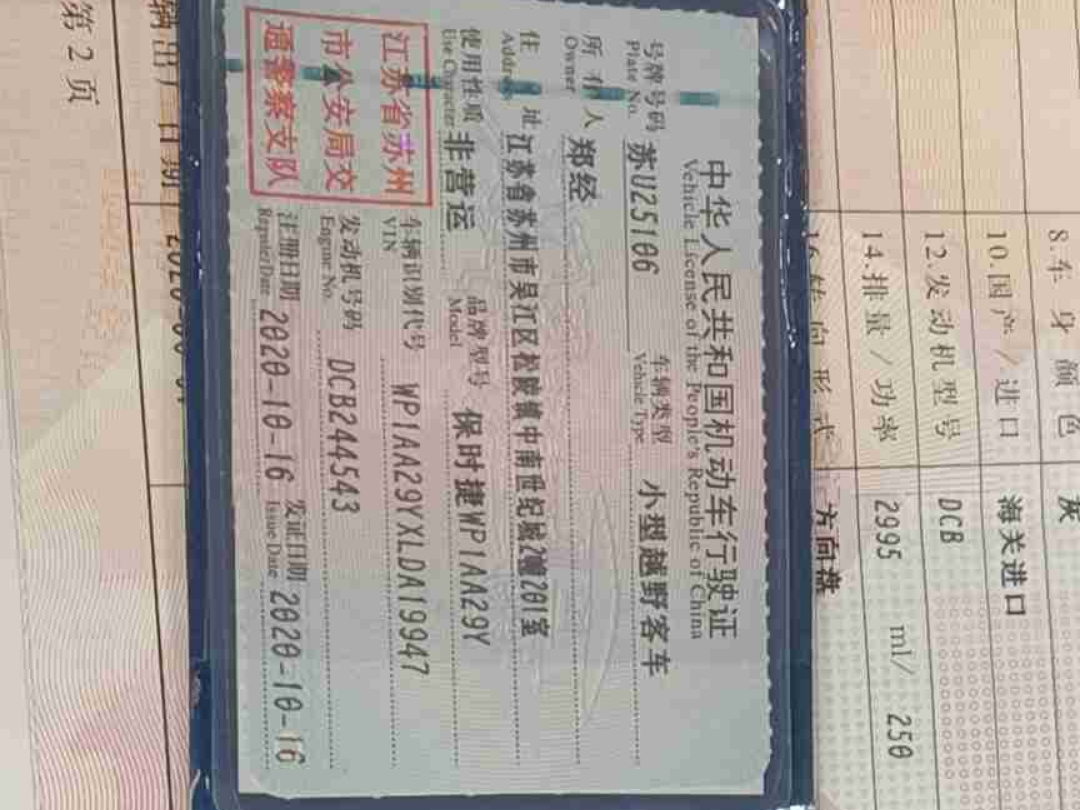 8.车身颜色 灰
10.国产/进口 海关进口
12.发动机型号 DCB
14.排量/功率 2995 ml/ 250
方向盘
中华人民共和国机动车行驶证
Vehicle License of the People's Republic of China
号牌号码 苏U25106 车辆类型 小型越野客车
Plate No. Vehicle Type
所有人 郑经
Owner
住址 江苏省苏州市吴江区松陵镇中南世纪城2幢201室
Address
使用性质 非营运 品牌型号 保时捷WP1AA29Y
Use Character Model
江苏省苏州
市公安局交
通警察支队
车辆识别代号 WP1AA29YXLDA19947
VIN
发动机号码 DCB244543
Engine No.
注册日期 2020-10-16 发证日期 2020-10-16
Register Date Issue Date
第2页